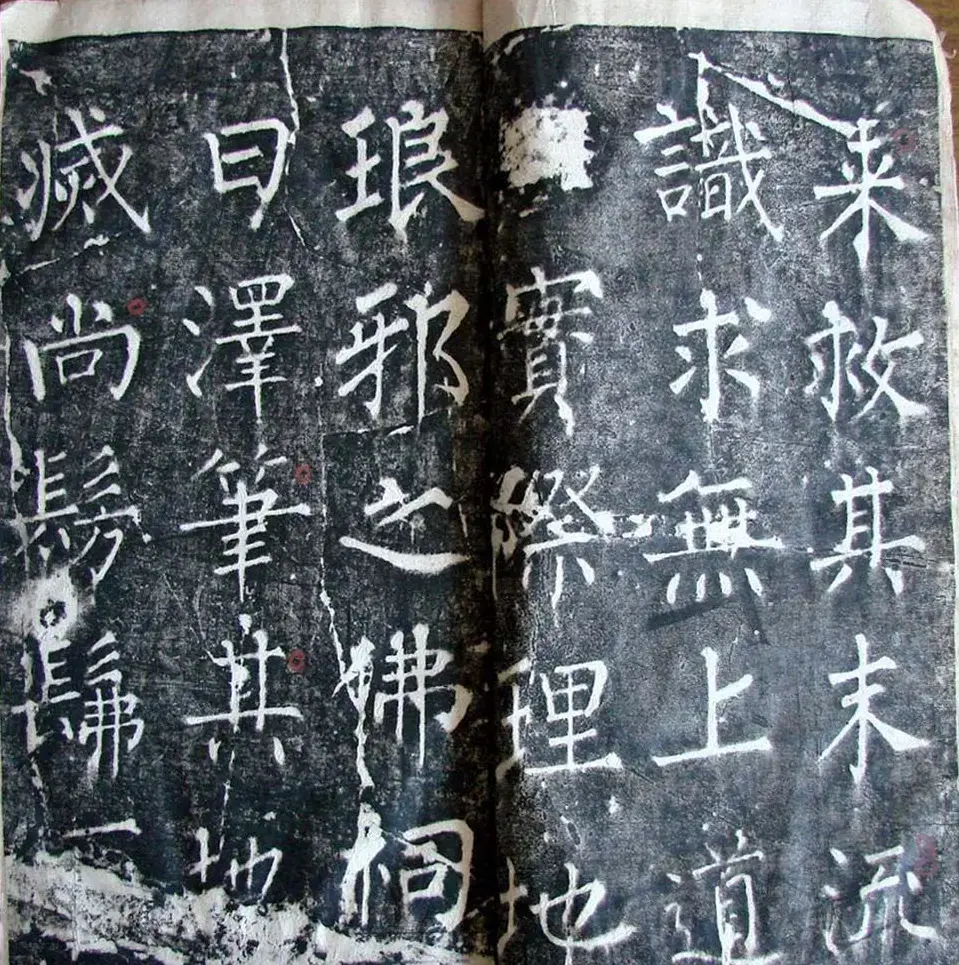 来救其末流
識求無上道
實際理地
琅邪之佛祠
曰澤筆其地
滅尚髣髴一